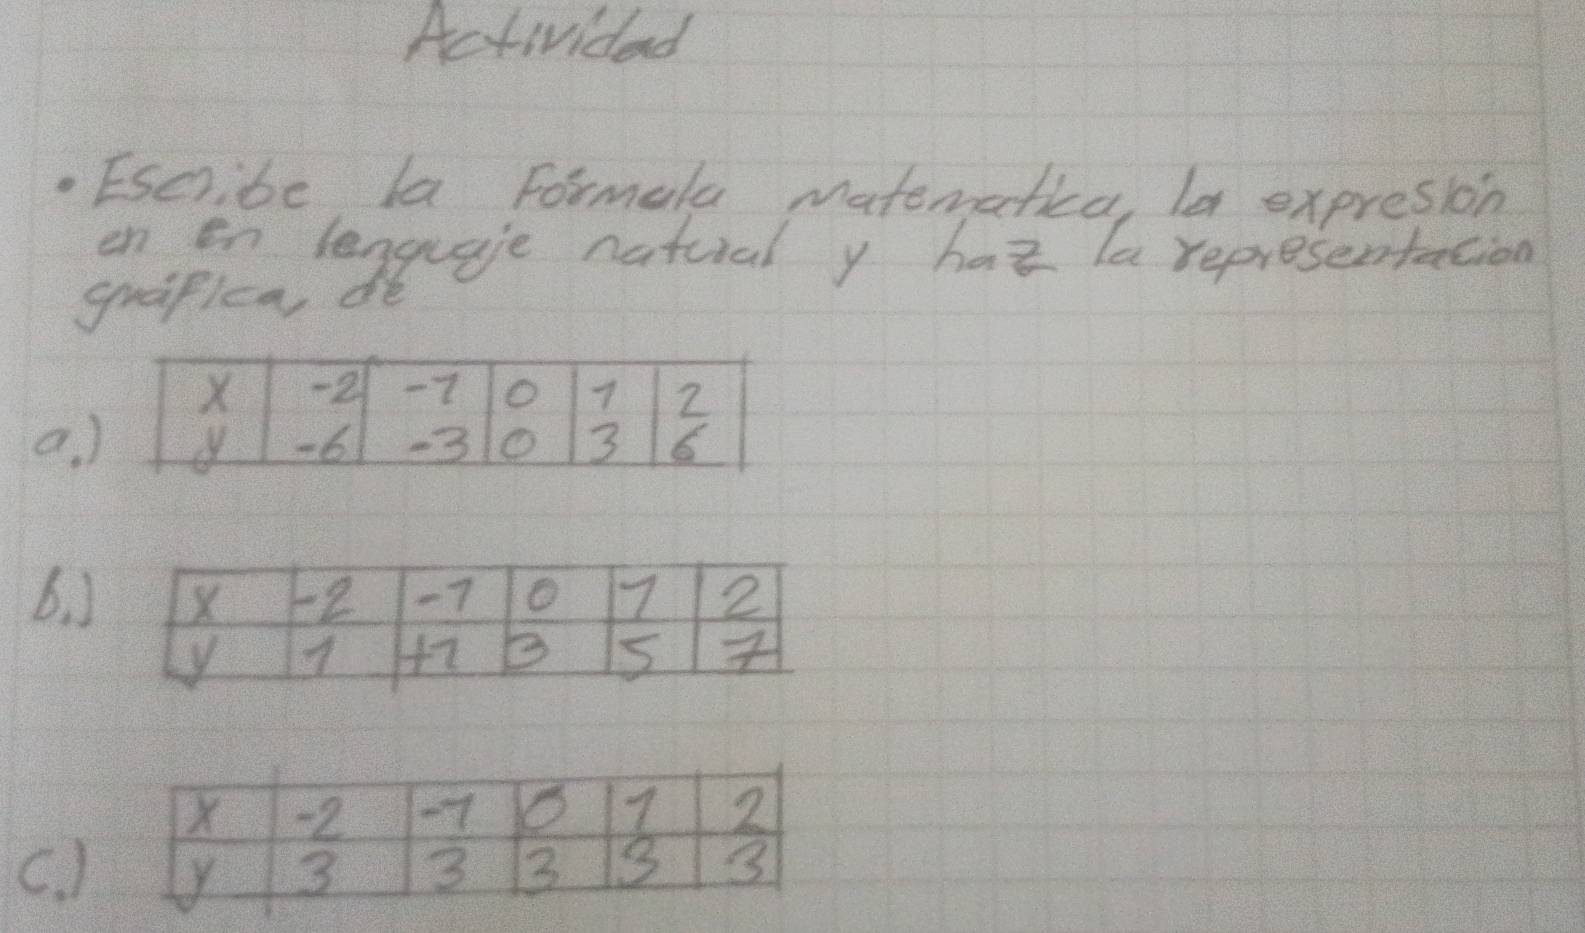 Actividad
• Escribe la Fórmula Matematica, la expresión
en en lenguaje natural y haz la representacion
gráfica, de
x -2 -1 0 1 2
a.) y -6 -3 0 3 6
b.) x -2 -1 0 1 2
y 1 +1 3 5 7
x -2 -1 0 1 2
c.) y 3 3 3 3 3